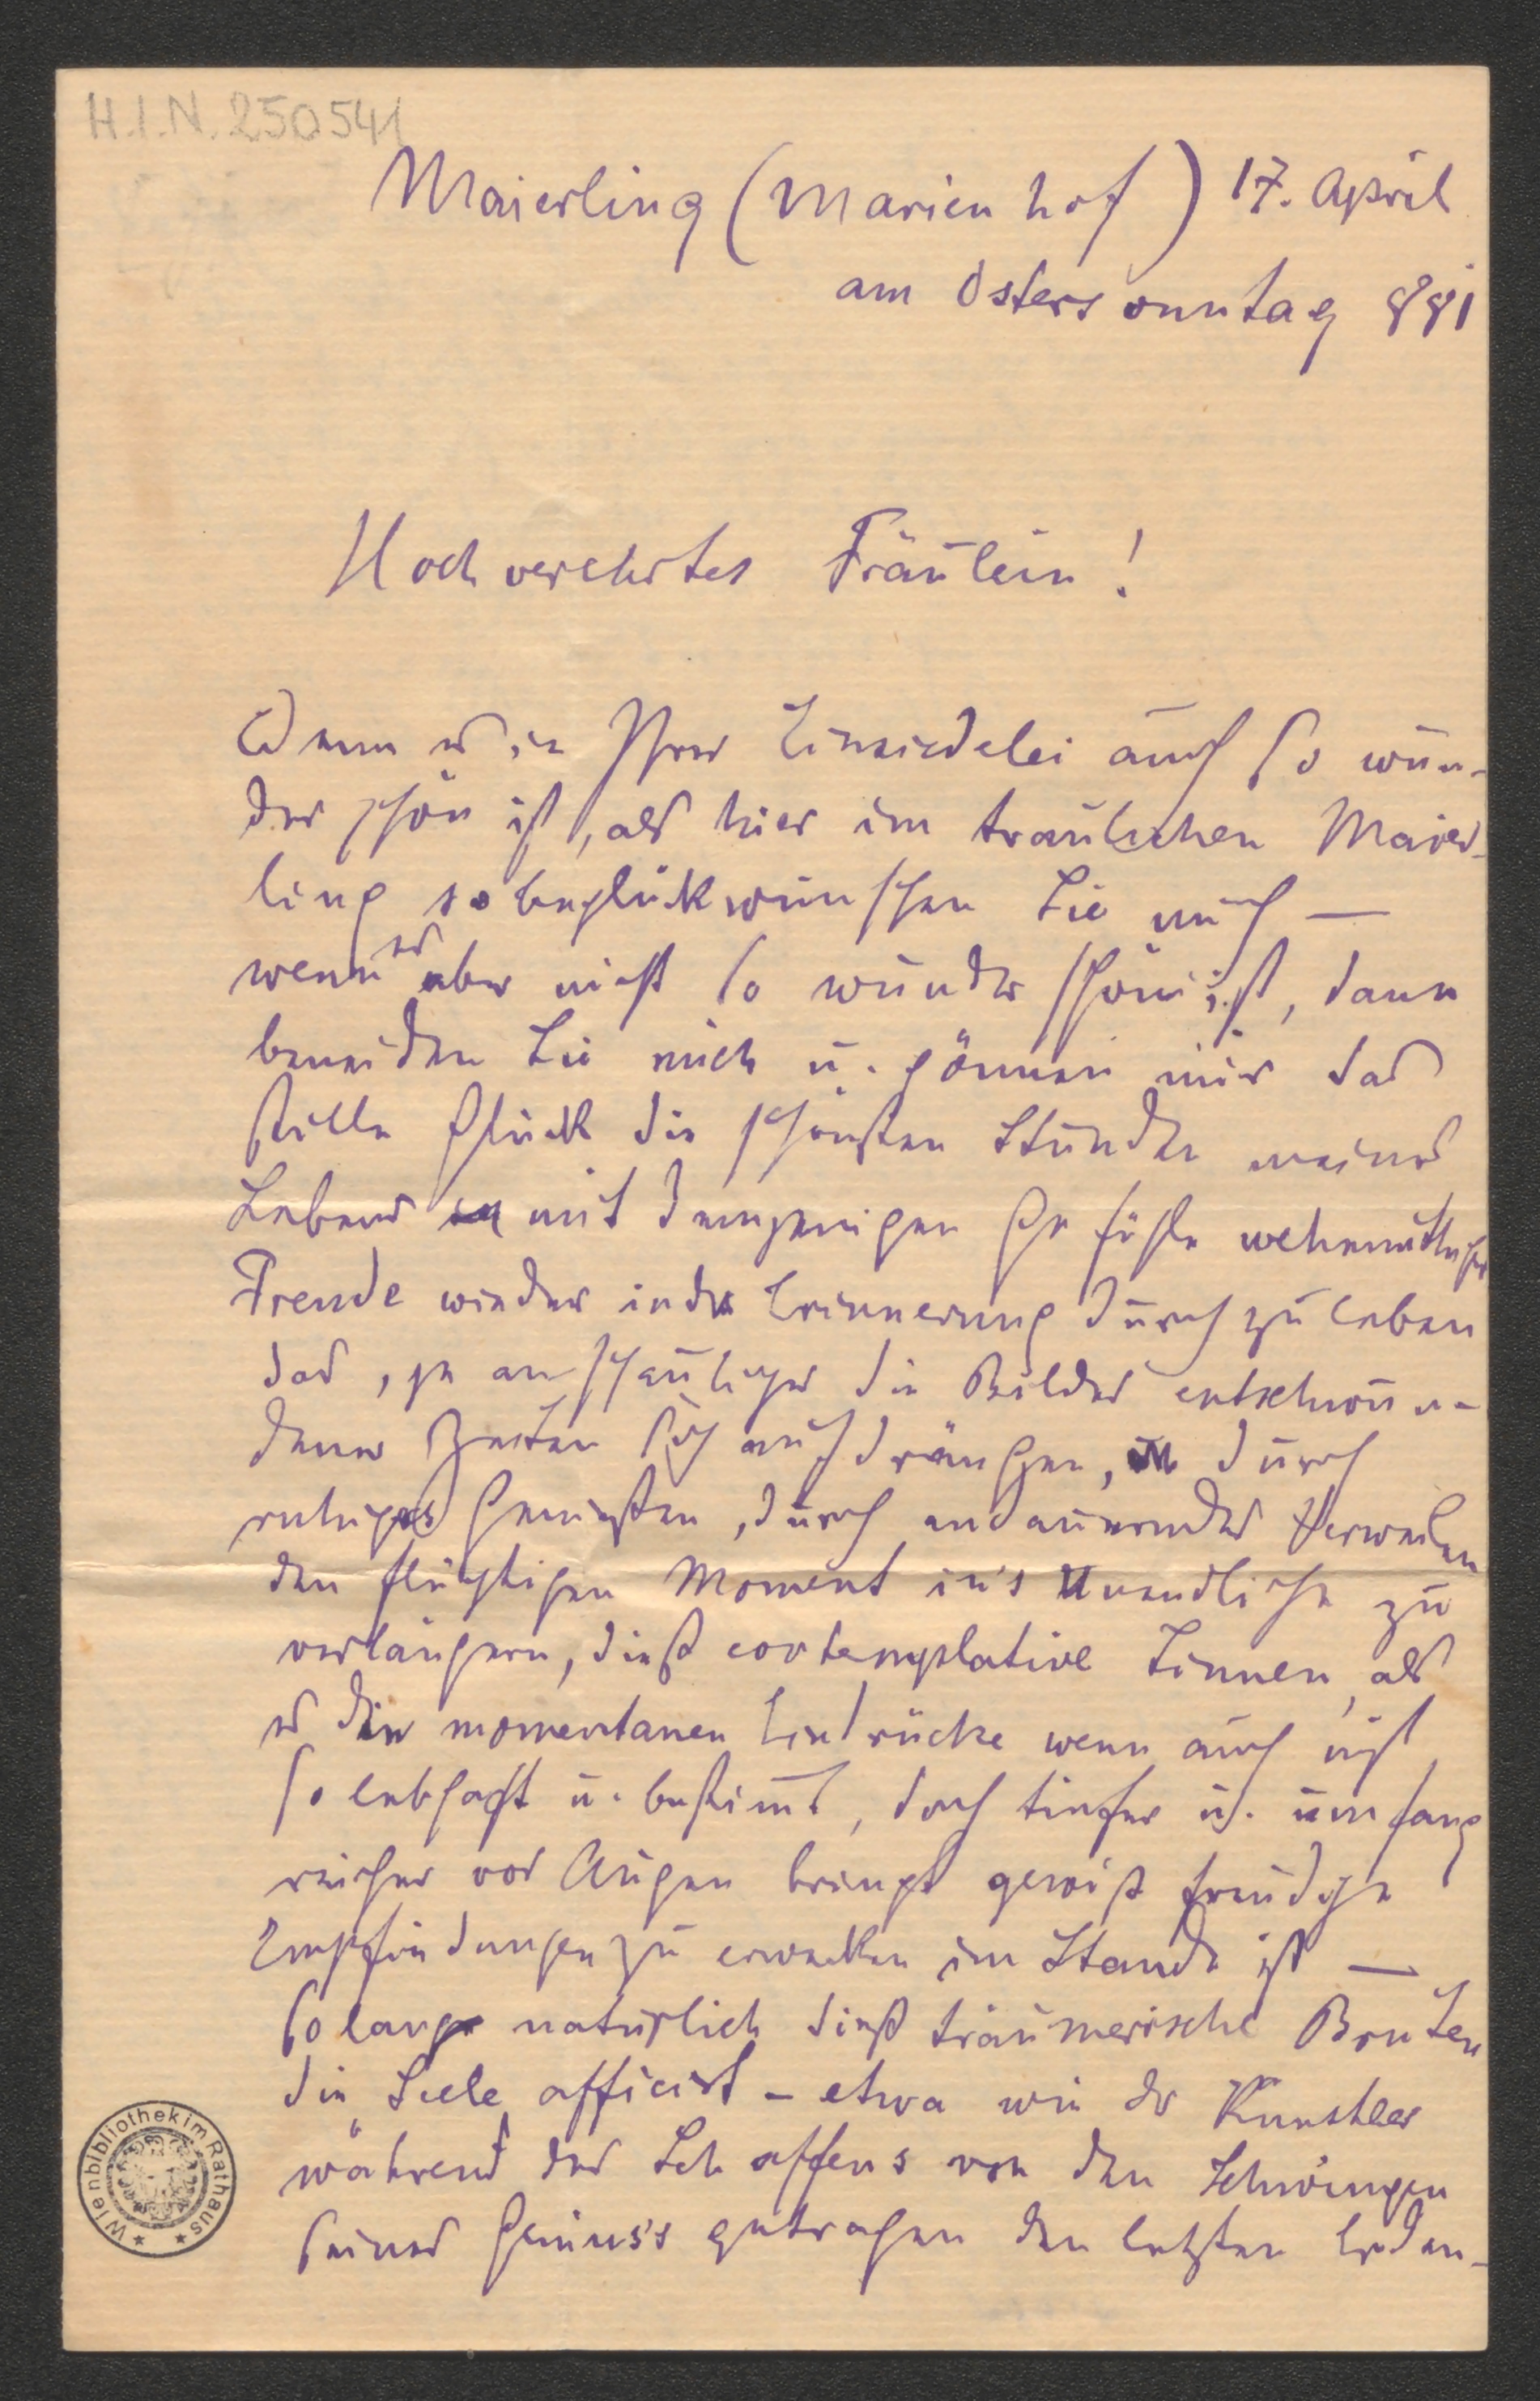 H.I.N. 250541
Maierling (Marienhof) 17. April
am Ostersonntag 881
Hochverehrtes Fräulein!
Wenn es in Ihrer Einsiedelei auch so wun-
derschön ist, als hier im traulichen Maier-
ling so beglückwünschen Sie mich —
wenn es aber nicht so wunderschön ist, dann
beneiden Sie mich u. gönnen mir das
stille Glück die schönsten Stunden meines
Lebens mit demjenigen Gefühle wehmüthiger
Freude wieder in der Erinnerung durchzuleben
das, je anschaulicher die Bilder entschwun-
dener Zeiten sich aufdrängen, durch
ruhiges Genießen, durch andauerndes Verweilen
den flüchtigen Moment in's Unendliche zu
verlängern, dieß contemplative Sinnen, als
es die momentanen Eindrücke wenn auch nicht
so lebhaft u. bestimt, doch tiefer u. umfang
reicher vor Augen bringt gewiß freudige
Empfindungen zu erwecken im Stande ist —
so lange natürlich dieß träumerische Bruten
die Seele afficirt – etwa wie der Künstler
während des Schaffens von den Schwingen
seines Genius's getragen den letzten Erden-
Wienbibliothek im Rathaus